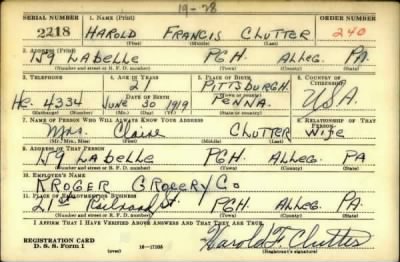 19-28
SERIAL NUMBER 1. NAME (Print) ORDER NUMBER
2218 HAROLD FRANCIS CLUTTER 240
(First) (Middle) (Last)
2. ADDRESS (Print)
159 LABELLE PGH. ALLEG. PA.
(Number and street or R. F. D. number) (Town) (County) (State)
3. TELEPHONE 4. AGE IN YEARS 5. PLACE OF BIRTH 6. COUNTRY OF CITIZENSHIP
21 PITTSBURGH
DATE OF BIRTH (Town or county)
HE. 4334 JUNE 30 1919 PENNA. USA
(Exchange) (Number) (Mo.) (Day) (Yr.) (State or country)
7. NAME OF PERSON WHO WILL ALWAYS KNOW YOUR ADDRESS 8. RELATIONSHIP OF THAT PERSON
Mrs. Claire CLUTTER Wife
(Mr., Mrs., Miss) (First) (Middle) (Last)
9. ADDRESS OF THAT PERSON
159 LABELLE PGH. ALLEG. PA
(Number and street or R. F. D. number) (Town) (County) (State)
10. EMPLOYER'S NAME
KROGER GROCERY CO
11. PLACE OF EMPLOYMENT OR BUSINESS
21st Railroad St. PGH ALLEG. PA
(Number and street or R. F. D. number) (Town) (County) (State)
I AFFIRM THAT I HAVE VERIFIED ABOVE ANSWERS AND THAT THEY ARE TRUE.
REGISTRATION CARD
D. S. S. Form 1 (over) 16—17105 Harold F. Clutter
(Registrant's signature)